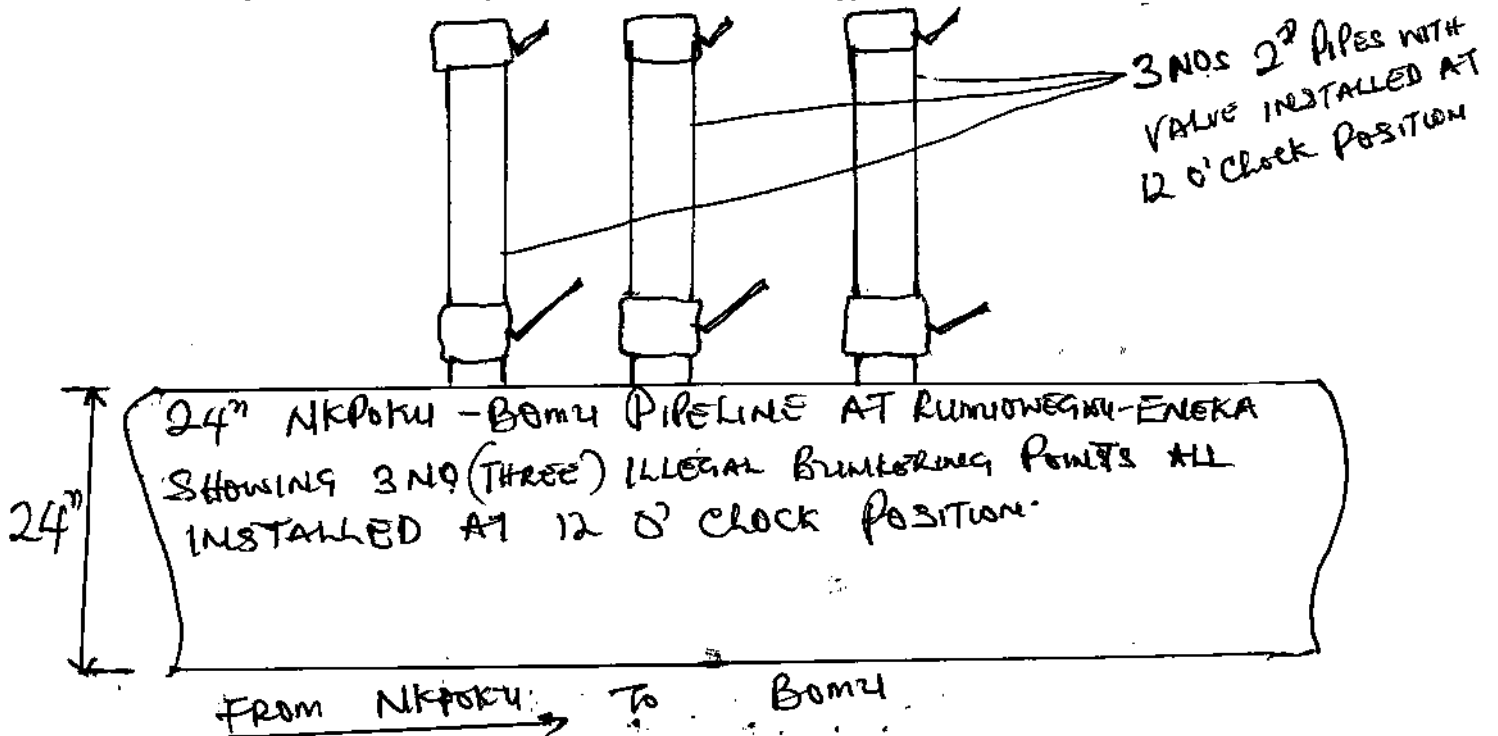 3 NOS 2" PIPES WITH
VALVE INSTALLED AT
12 O' CLOCK POSITION
24" NKPOKU - BOMU PIPELINE AT RUMUOWEGWU-ENEKA
SHOWING 3 NO (THREE) ILLEGAL BUNKERING POINTS ALL
INSTALLED AT 12 O' CLOCK POSITION.
24"
FROM NKPOKU TO BOMU